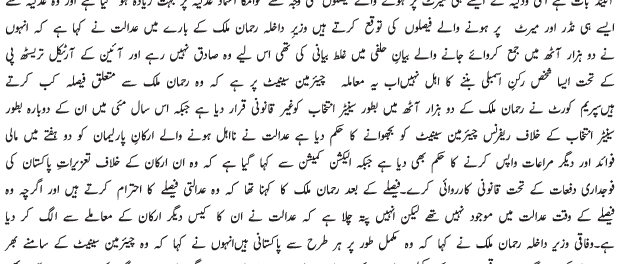 ایسے ہی نڈر اور میرٹ پر ہونے والے فیصلوں کی توقع کرتے ہیں وزیر داخلہ رحمان ملک کے بارے میں عدالت نے کہا ہے کہ انہوں
نے دو ہزار آٹھ میں جمع کروائے جانے والے بیانِ حلفی میں غلط بیانی کی تھی اس لیے وہ صادق نہیں رہے اور آئین کے آرٹیکل تریسٹھ پی
کے تحت ایسا شخص رکنِ اسمبلی بننے کا اہل نہیں اب یہ معاملہ چیئرمین سینیٹ پر ہے کہ وہ رحمان ملک سے متعلق فیصلہ کب کرتے
ہیں سپریم کورٹ نے رحمان ملک کے دو ہزار آٹھ میں بطور سینیٹر انتخاب کو غیر قانونی قرار دیا ہے جبکہ اس سال مئی میں ان کے دوبارہ بطور
سینیٹر انتخاب کے خلاف ریفرنس چیئرمین سینیٹ کو بھجوانے کا حکم دیا ہے عدالت نے نااہل ہونے والے ارکانِ پارلیمان کو دو ہفتے میں مالی
فوائد اور دیگر مراعات واپس کرنے کا حکم بھی دیا ہے جبکہ الیکشن کمیشن سے کہا گیا ہے کہ وہ ان ارکان کے خلاف تعزیراتِ پاکستان کی
فوجداری دفعات کے تحت قانونی کارروائی کرے۔فیصلے کے بعد رحمان ملک کا کہنا تھا کہ وہ عدالتی فیصلے کا احترام کرتے ہیں اور اگرچہ وہ
فیصلے کے وقت عدالت میں موجود نہیں تھے لیکن انہیں پتہ چلا ہے کہ عدالت نے ان کا کیس دیگر ارکان کے معاملے سے الگ کر دیا
ہے۔وفاقی وزیر داخلہ رحمان ملک نے کہا کہ وہ مکمل طور پر ہر طرح سے پاکستانی ہیں انہوں نے کہا کہ وہ چیئرمین سینیٹ کے سامنے بھر